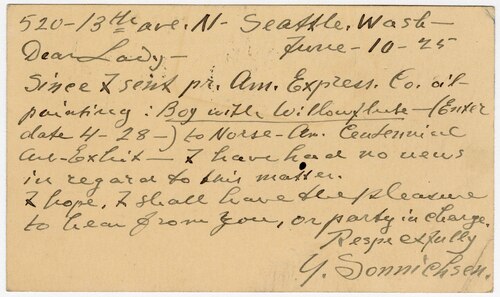 520-13th ave. N- Seattle. Wash-
Dear Lady,- June-10-25
Since I sent pr. Am. Express. Co. oil-
painting: Boy with Willowflute-(Exner
date 4-28-) to Norse-Am. Centennial
Art-Exhit- I have had no news
in regard to this matter.
I hope, I shall have the pleasure
to hear from you, or party in charge.
Respectfully
Y. Sonnichsen.